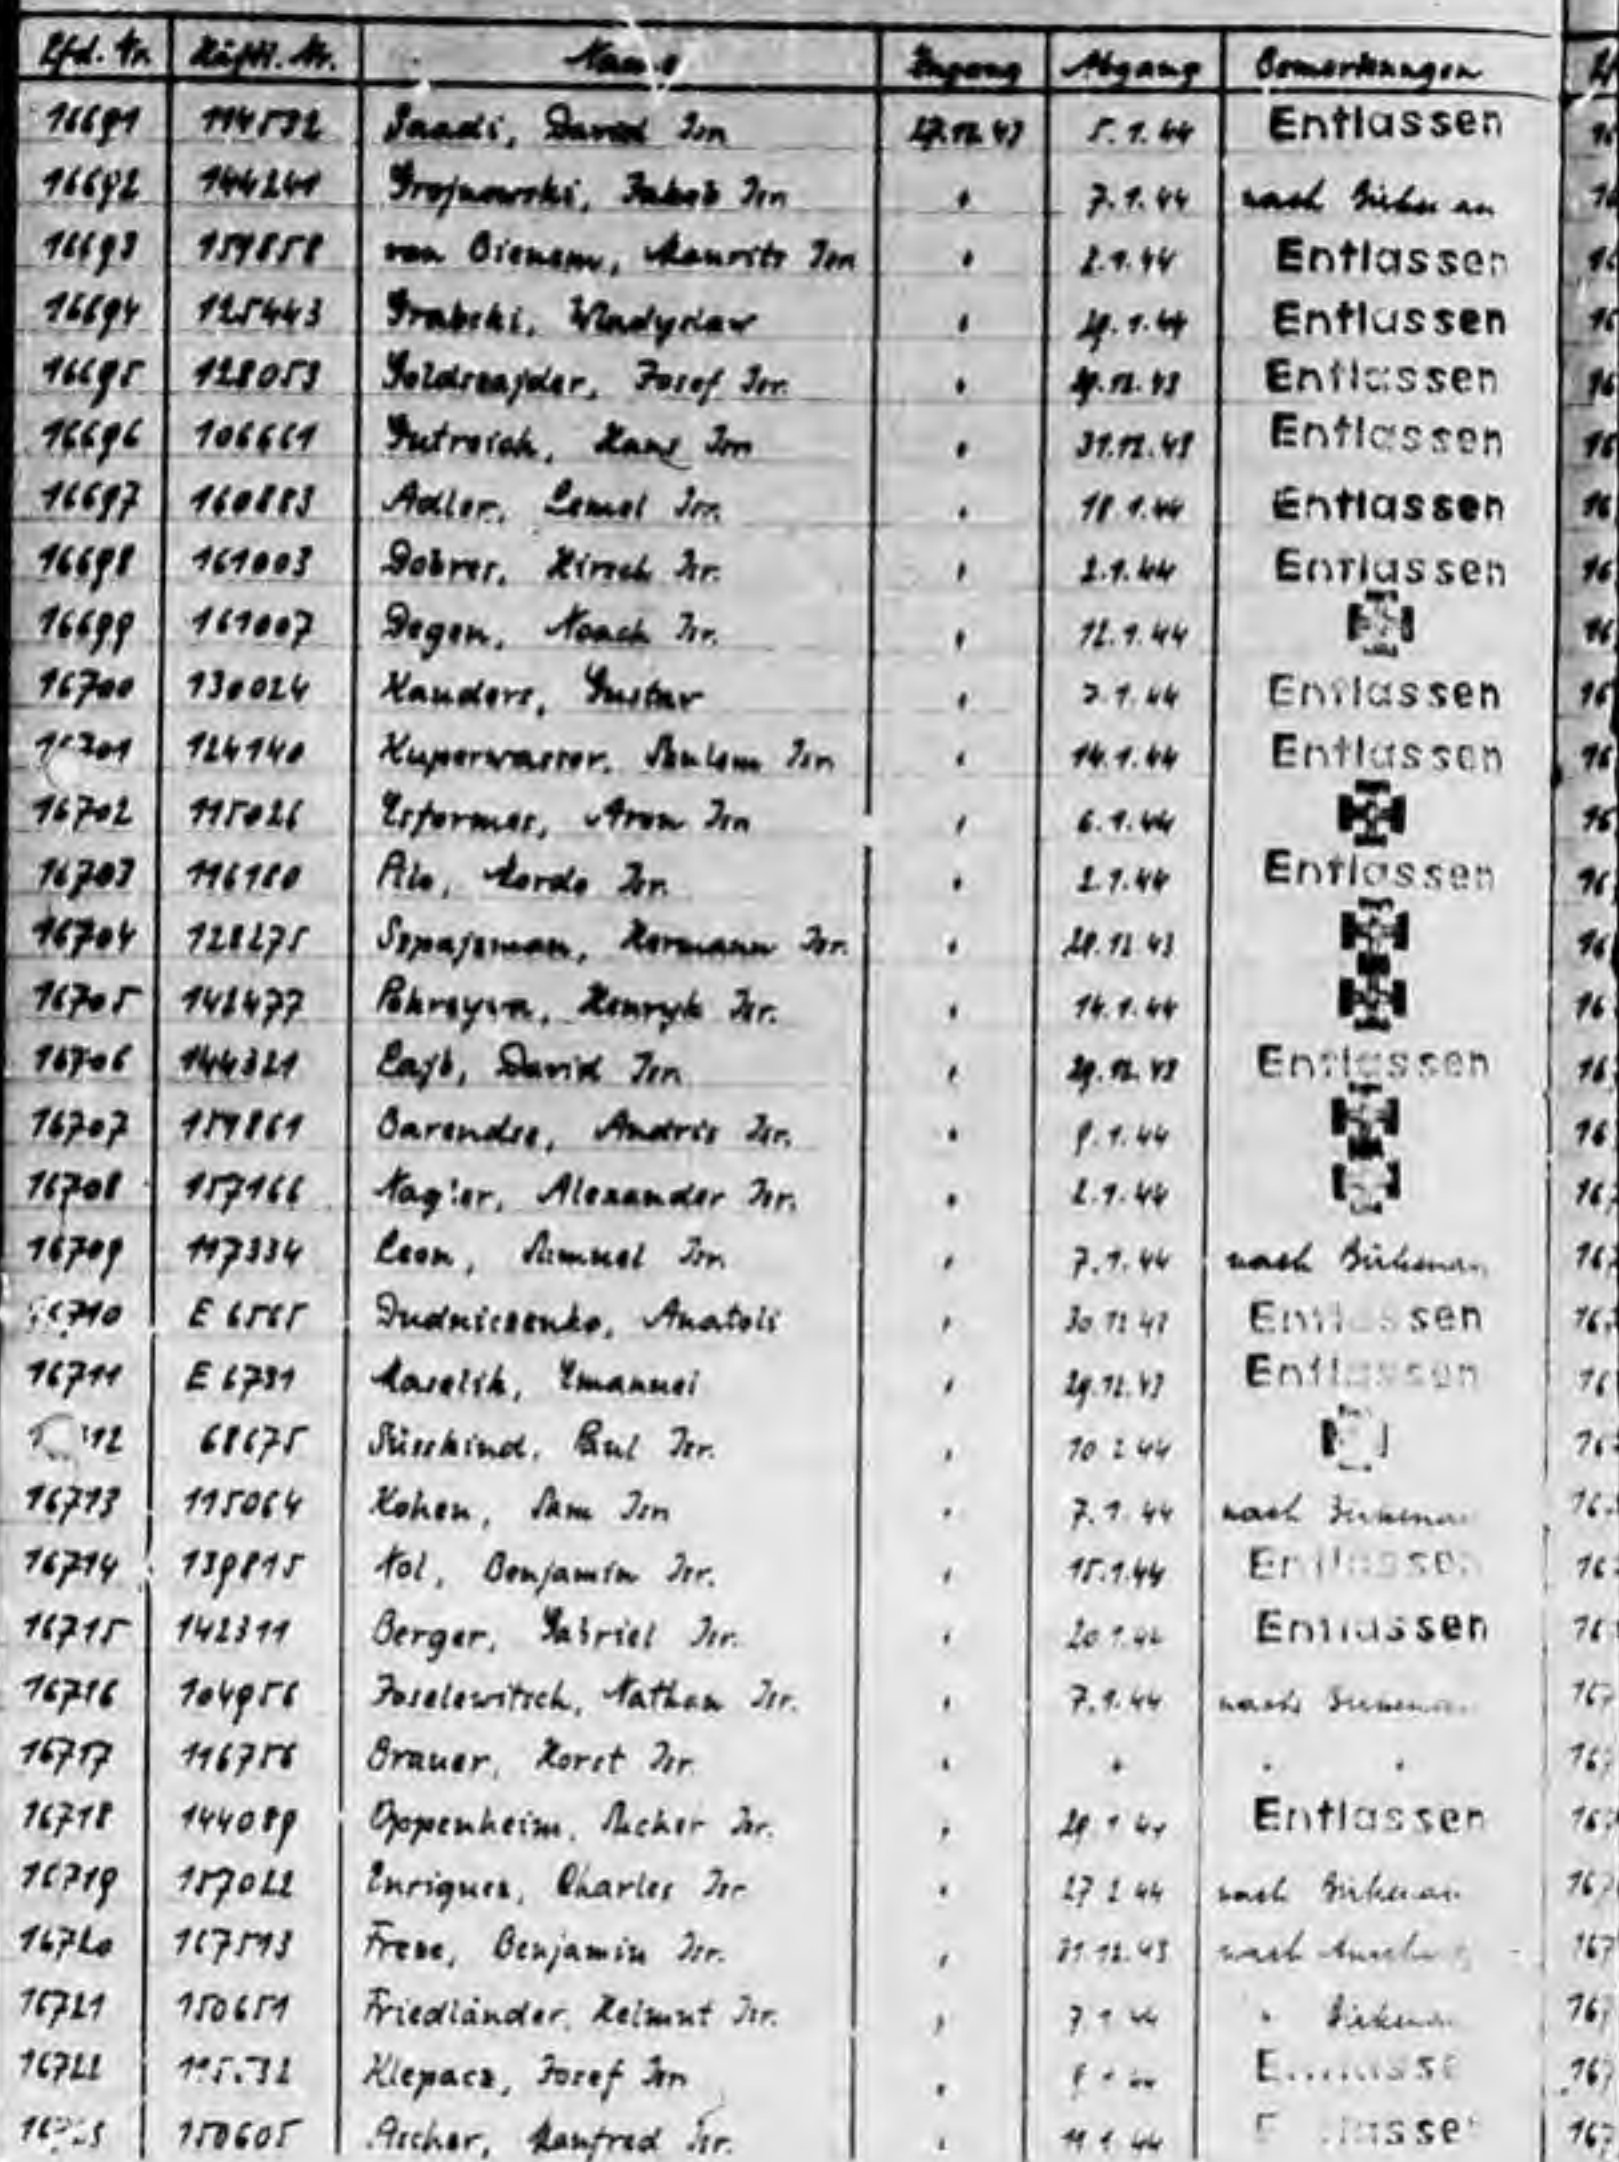 Lfd. Nr. Häftl. Nr. Name Zugang Abgang Bemerkungen
16691 114532 Saadi, David Isr. 27.12.43 5.1.44 Entlassen
16692 144241 Grojnowski, Jakob Isr. " 7.1.44 nach Birkenau
16693 159858 van Bienem, Maurits Isr. " 2.1.44 Entlassen
16694 125443 Grabski, Wladyslaw " 29.1.44 Entlassen
16695 128053 Goldszajder, Josef Isr. " 29.12.43 Entlassen
16696 106661 Gutreich, Hans Isr. " 31.12.43 Entlassen
16697 160883 Adler, Lemel Isr. " 18.1.44 Entlassen
16698 161003 Dobrer, Hirsch Isr. " 2.1.44 Entlassen
16699 161007 Degen, Noach Isr. " 12.1.44
16700 130024 Handers, Gustav " 7.1.44 Entlassen
16701 124140 Kuperwasser, Szulem Isr. " 14.1.44 Entlassen
16702 115026 Esformes, Aron Isr. " 6.1.44
16703 116180 Pilo, Mordo Isr. " 2.1.44 Entlassen
16704 128275 Szpajzman, Hermann Isr. " 28.12.43
16705 142477 Henryk Isr. " 14.1.44
16706 144321 Lajb, David Isr. " 29.12.43 Entlassen
16707 159861 Barendse, Andris Isr. " 9.1.44
16708 157166 Nagler, Alexander Isr. " 2.1.44
16709 117334 Leon, Samuel Isr. " 7.1.44 nach Birkenau
16710 E 6565 Dudniczenko, Anatoli " 30.12.43 Entlassen
16711 E 6731 Maselik, Emanuel " 29.12.43 Entlassen
68675 Süsskind, Paul Isr. " 10.2.44
16713 115064 Kohen, Sam Isr. " 7.1.44 nach Birkenau
16714 139815 Nol, Benjamin Isr. " 15.1.44 Entlassen
16715 142311 Berger, Gabriel Isr. " 20.1.44 Entlassen
16716 104956 Joselewitsch, Nathan Isr. " 7.1.44 nach Birkenau
16717 116756 Brauer, Horst Isr. " " " "
16718 144089 Oppenheim, Ascher Isr. " 29.1.44 Entlassen
16719 157022 Enriquez, Charles Isr. " 27.2.44 nach Birkenau
16720 167513 Frese, Benjamin Isr. " 31.12.43 nach
16721 150651 Friedländer, Helmut Isr. " 7.1.44 " Birkenau
16722 Klepacz, Josef Isr. " Entlassen
150605 Ascher, Manfred Isr. " 11.1.44 Entlassen